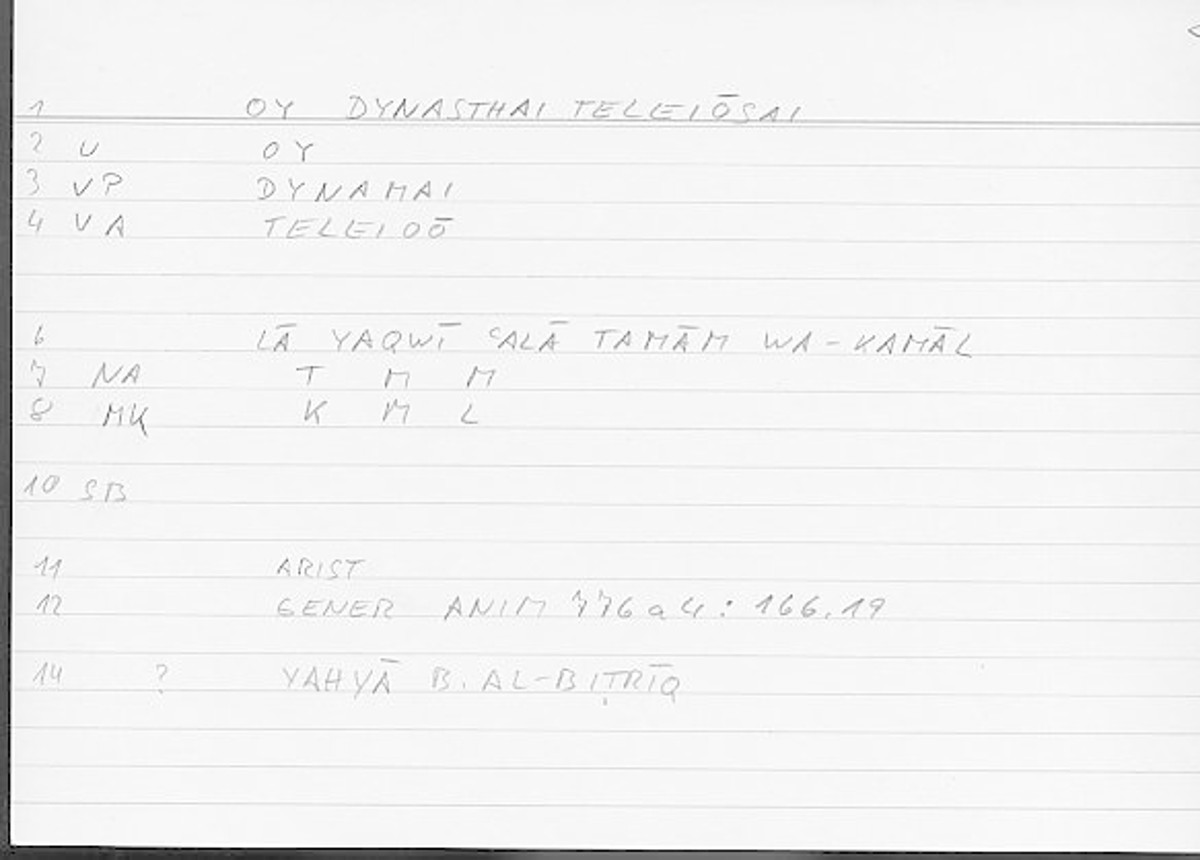 1 OY DYNASTHAI TELEIŌSAI
2 U OY
3 VP DYNAMAI
4 VA TELEIOŌ
6 LĀ YAQWĪ ʿALĀ TAMĀM WA-KAMĀL
7 NA T M M
8 MK K M L
10 SB
11 ARIST
12 GENER ANIM 776a4: 166.19
14 ? YAHYĀ B. AL-BIṬRĪQ